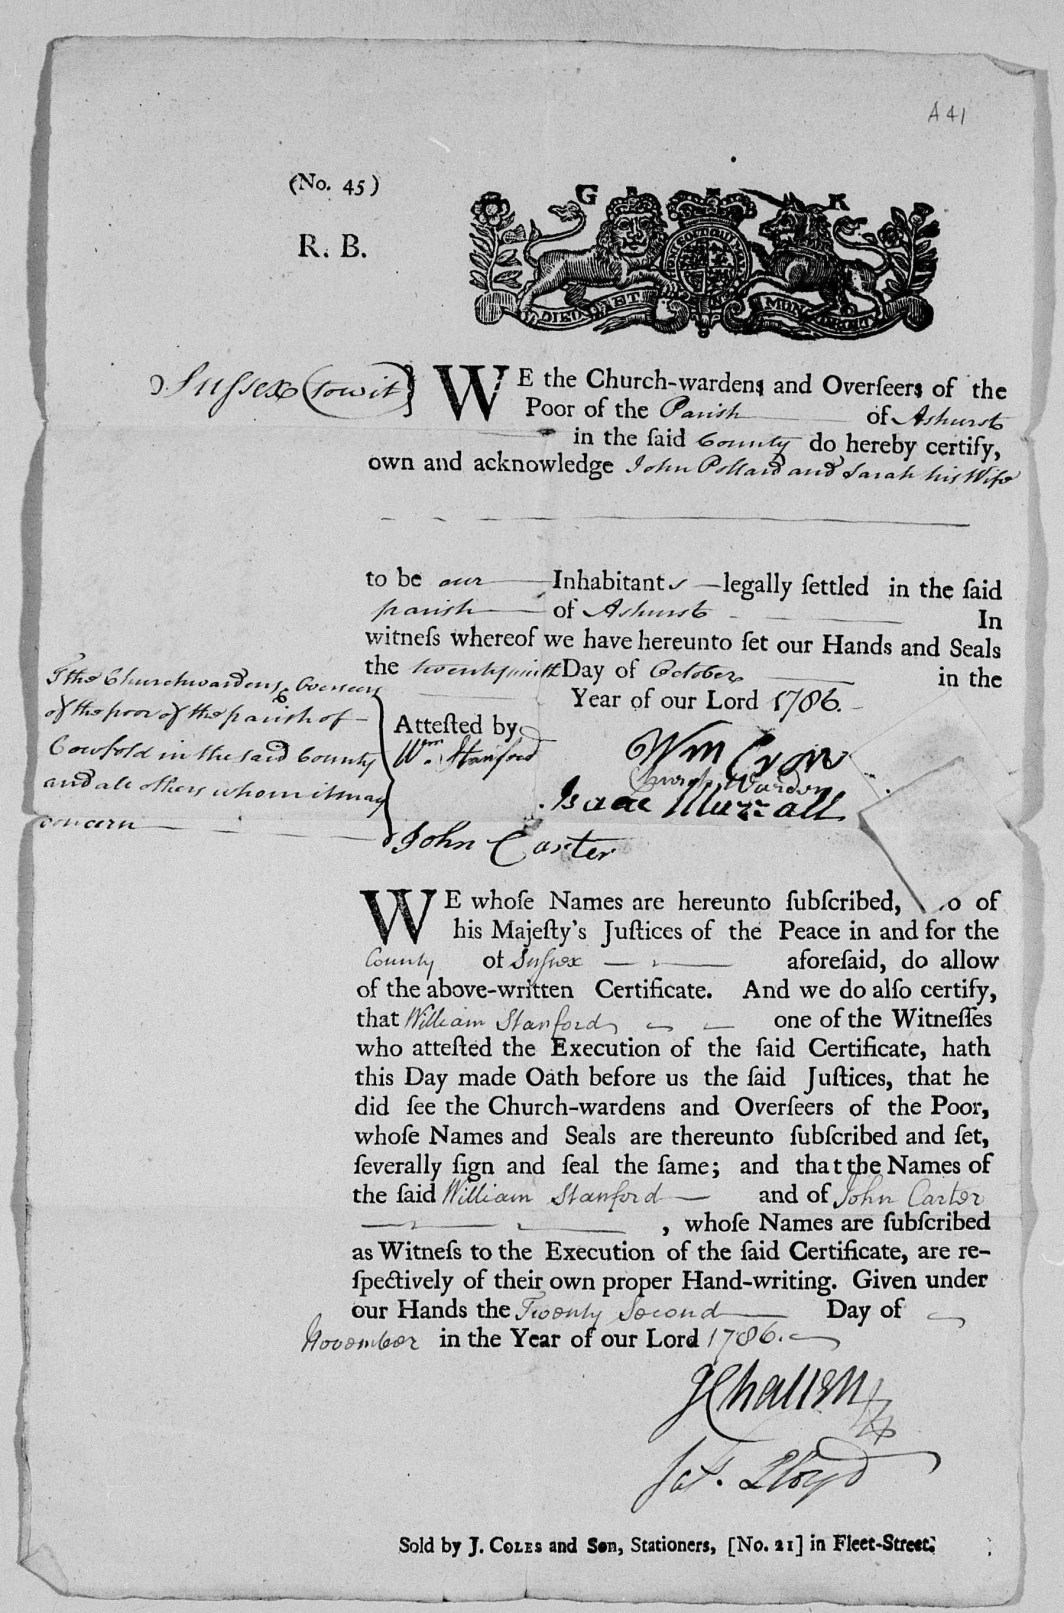 A 41
(No. 45)
R. B.
G R
DIEU ET MON DROIT
Sussex (to wit)
WE the Church-wardens and Overſeers of the
Poor of the Parish of Ashurst
in the ſaid County do hereby certify,
own and acknowledge John Pollard and Sarah his Wife
to be our Inhabitants legally ſettled in the ſaid
parish of Ashurst In
witneſs whereof we have hereunto ſet our Hands and Seals
the twenty ninth Day of October in the
Year of our Lord 1786.
To the Churchwardens & Overseers
of the poor of the parish of
Cowfold in the said County
and all others whom it may
concern
Attested by
Wm. Stanford
John Carter
Wm Crow
Church Warden
Isaac Muzzall
WE whoſe Names are hereunto ſubſcribed, o of
his Majeſty's Juſtices of the Peace in and for the
County of Sussex aforeſaid, do allow
of the above-written Certificate. And we do alſo certify,
that William Stanford one of the Witneſſes
who atteſted the Execution of the ſaid Certificate, hath
this Day made Oath before us the ſaid Juſtices, that he
did ſee the Church-wardens and Overſeers of the Poor,
whoſe Names and Seals are thereunto ſubſcribed and ſet,
ſeverally ſign and ſeal the ſame; and that the Names of
the ſaid William Stanford and of John Carter
, whoſe Names are ſubſcribed
as Witneſs to the Execution of the ſaid Certificate, are re-
ſpectively of their own proper Hand-writing. Given under
our Hands the Twenty Second Day of
November in the Year of our Lord 1786.
J Challen
Jas. Lloyd
Sold by J. COLES and Son, Stationers, [No. 21] in Fleet-Street.